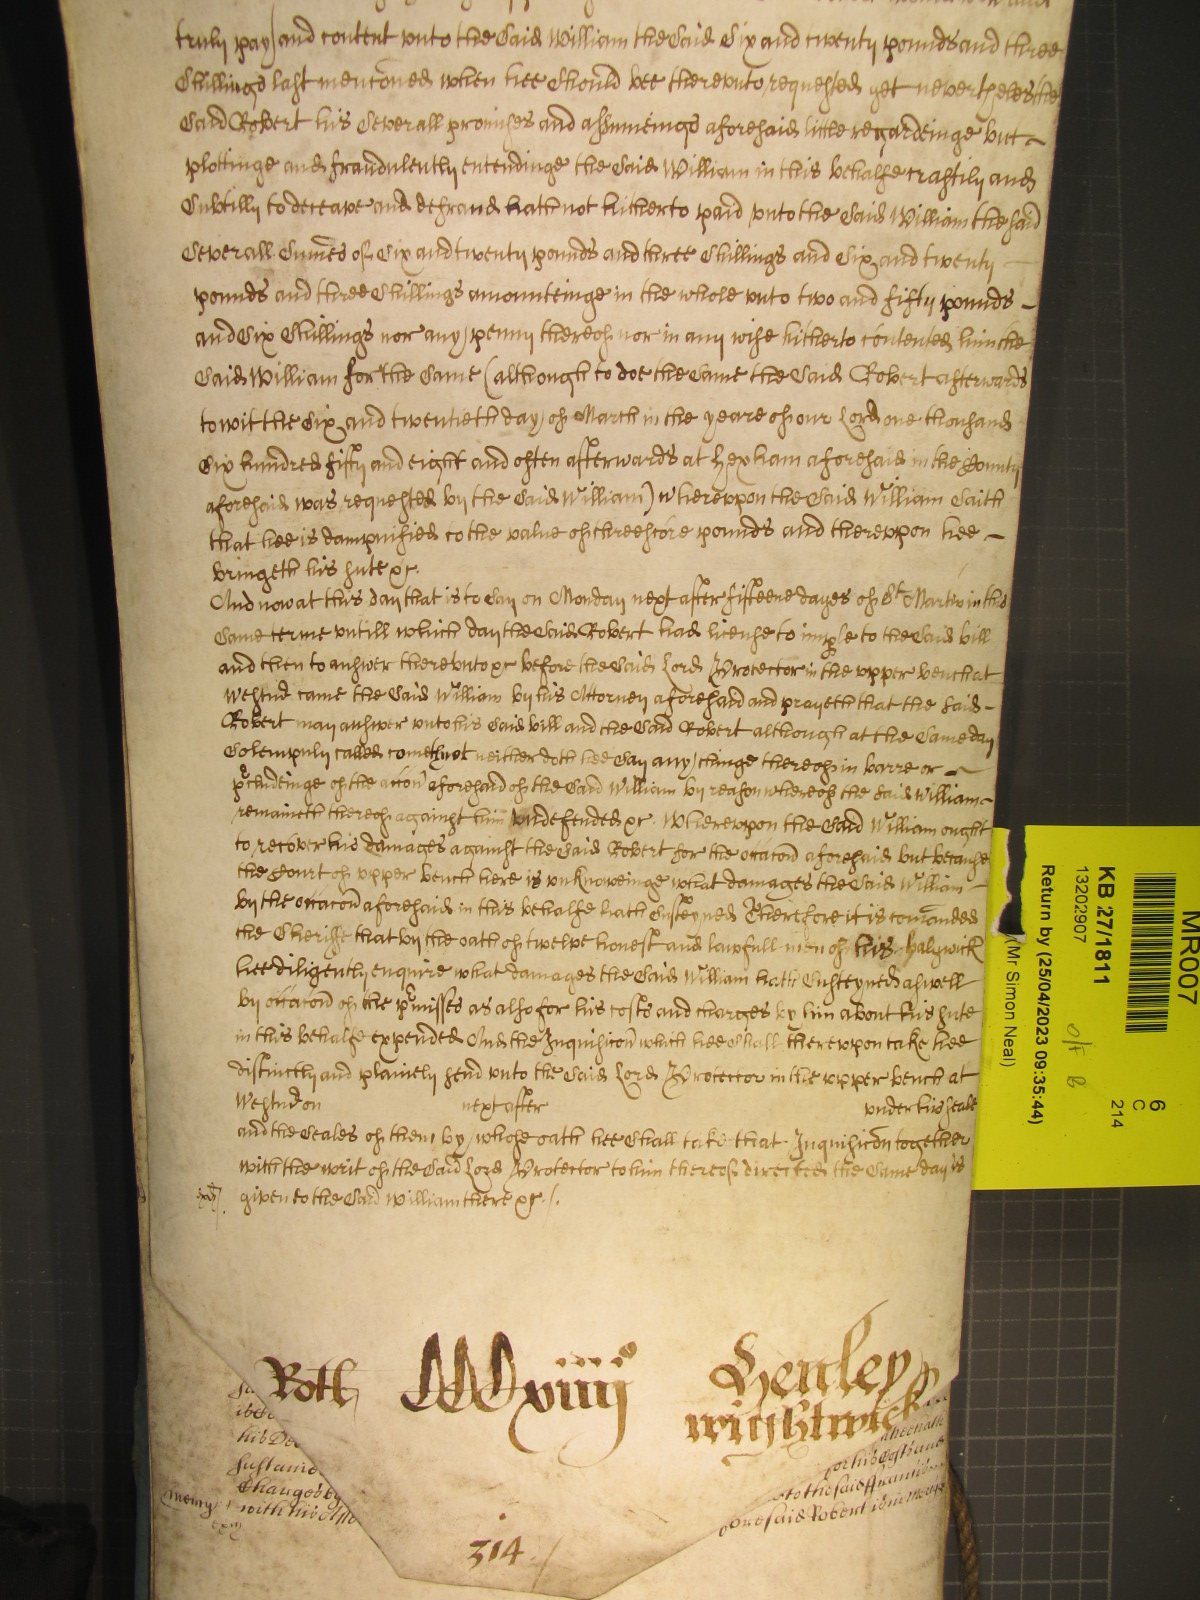 truly pay and content unto the said William the said Six and twenty pounds and three
Shillings last mencioned when hee should bee thereunto requested yet neverthelesse the
said Robert his severall promises and assumeings aforesaid little regardeinge but
plottinge and fraudulently entendinge the said William in this behalfe craftily and
subtilly to deceave and defraud hath not hitherto paid unto the said William the said
severall Sumes of Six and twenty pounds and three Shillings and Six and twenty
pounds and three Shillings amounteinge in the whole unto two and fifty pounds
and Six Shillings nor any penny thereof nor in any wise hitherto contented him the
said William for the same (although to doe the same the said Robert afterwards
to wit the Six and twentieth day of March in the yeare of our Lord one thousand
Six hundred fifty and eight and often afterwards at Hexham aforesaid in the County
aforesaid was requested by the said William) whereuppon the said William saith
that hee is dampnified to the value of threescore pounds and thereuppon hee
bringeth his sute &c.
And now at this day that is to say on Monday next after fifteene dayes of St Martin in this
same terme untill which day the said Robert had license to imple to the said bill
and then to answer thereunto &c before the said Lord Protector in the upper bench at
Westmr came the said William by his Attorney aforesaid and prayeth that the said
Robert may answer unto his said bill and the said Robert although at the same day
solempnly called cometh not neither doth hee say any thinge thereof in barre or
pcludeinge of the accon aforesaid of the said William by reason whereof the said William
remaineth thereof against him undefended &c. Whereuppon the said William ought
to recover his damages against the said Robert for the occacon aforesaid but because
the Court of upper bench here is unknoweinge what damages the said William
by the occacon aforesaid in this behalfe hath susteyned Therefore it is comanded
the Sheriffe that by the oath of twelve honest and lawfull men of his balywick
hee diligently enquire what damages the said William hath susteyned aswell
by occacon of the pmisses as also for his costs and charges by him about his sute
in this behalfe expended And the Inquisicon which hee shall thereuppon take hee
distinctly and plainely send unto the said Lord Protector in the upper bench at
Westmr on next after under his seale
and the seales of them by whose oath hee shall take that Inquisicon together
with the writ of the said Lord Protector to him thereof directed the same day is
given to the said William there &c./.
Rotl CCCxiiij Henley
wightwick
his De
sustaine
Charges by
with his
for his Costs and
to the said
foresaid Robert
314
MR007
6
C
214
KB 27/1811
13202907
Return by (25/04/2023 09:35:44)
(Mr Simon Neal)